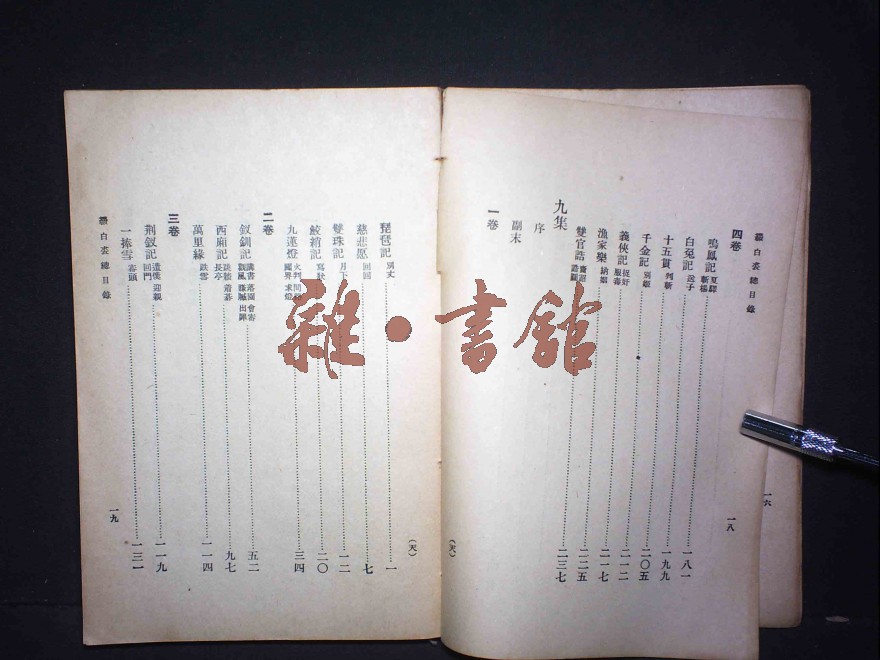 綴白裘總目錄
四卷
鳴鳳記 夏驛 斬楊 一八一
白兔記 送子 一九九
十五貫 判斬 二〇五
千金記 別姬 二一二
義俠記 捉奸 服毒 二一七
漁家樂 納姻 二二五
雙官誥 二三七
九集
序
副末
一卷
(天)
一八
一六
琵琶記 別丈 一
慈悲愿 回回 七
雙珠記 月下 一二
鮫綃記 寫狀 二〇
九蓮燈 火判 問 闖界 求燈 三四
二卷
釵釧記 講書 落園 會審 觀風 出罪 五二
西廂記 跳牆 着棋 長亭 九七
萬里緣 跌雪 一一四
三卷
荊釵記 遣僕 迎親 回門 一一九
一捧雪 審頭 一三一
綴白裘總目錄
(天)
一九
雜·書館